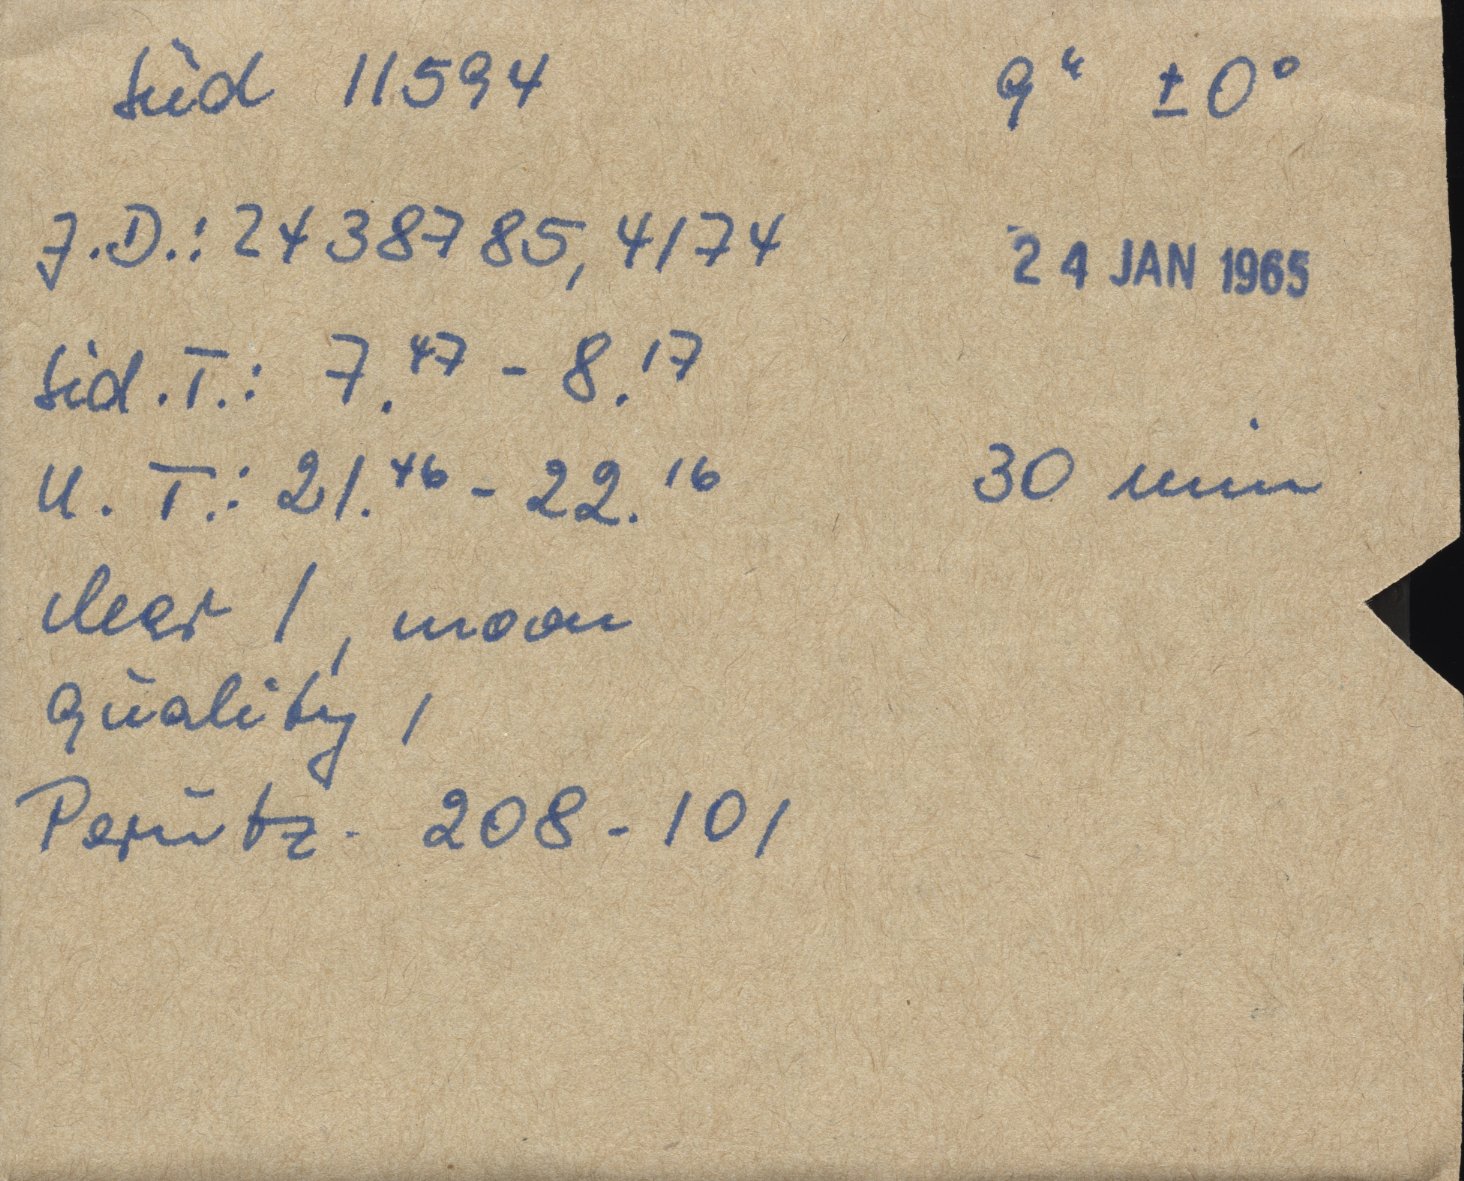 Süd 11594 9ʰ ±0°
J.D.: 2438785,4174 24 JAN 1965
Sid.T.: 7.⁴⁷ - 8.¹⁷
U.T.: 21.⁴⁶ - 22.¹⁶ 30 min
clear 1, moon
quality 1
Perutz - 208-101